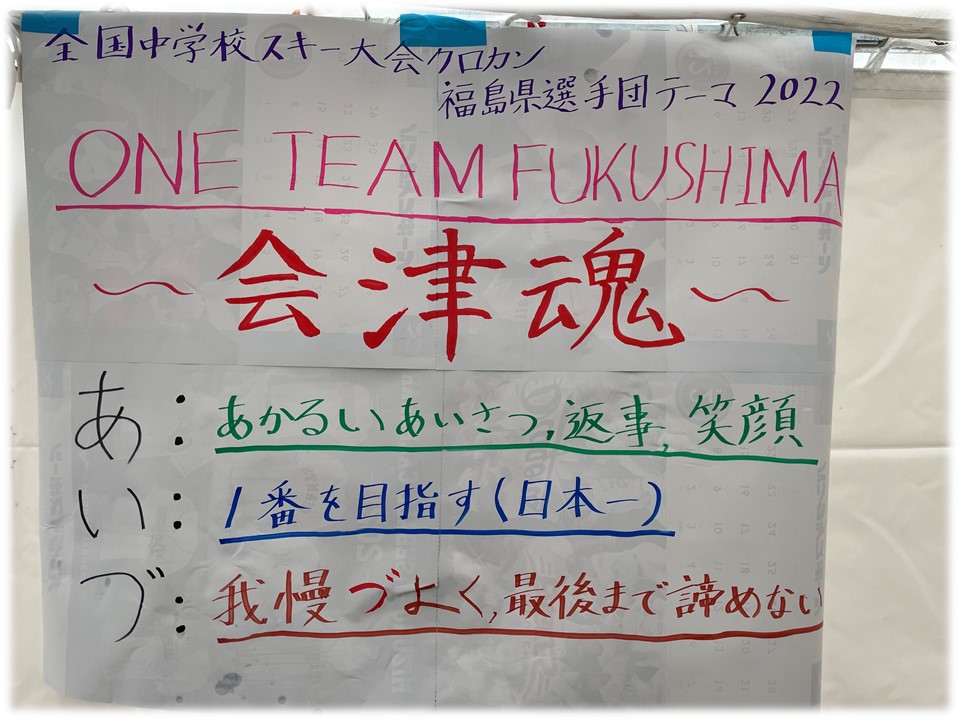 全国中学校スキー大会クロカン
福島県選手団テーマ 2022
ONE TEAM FUKUSHIMA
～会津魂～
あ：あかるいあいさつ,返事,笑顔
い：1番を目指す(日本一)
づ：我慢づよく,最後まで諦めない